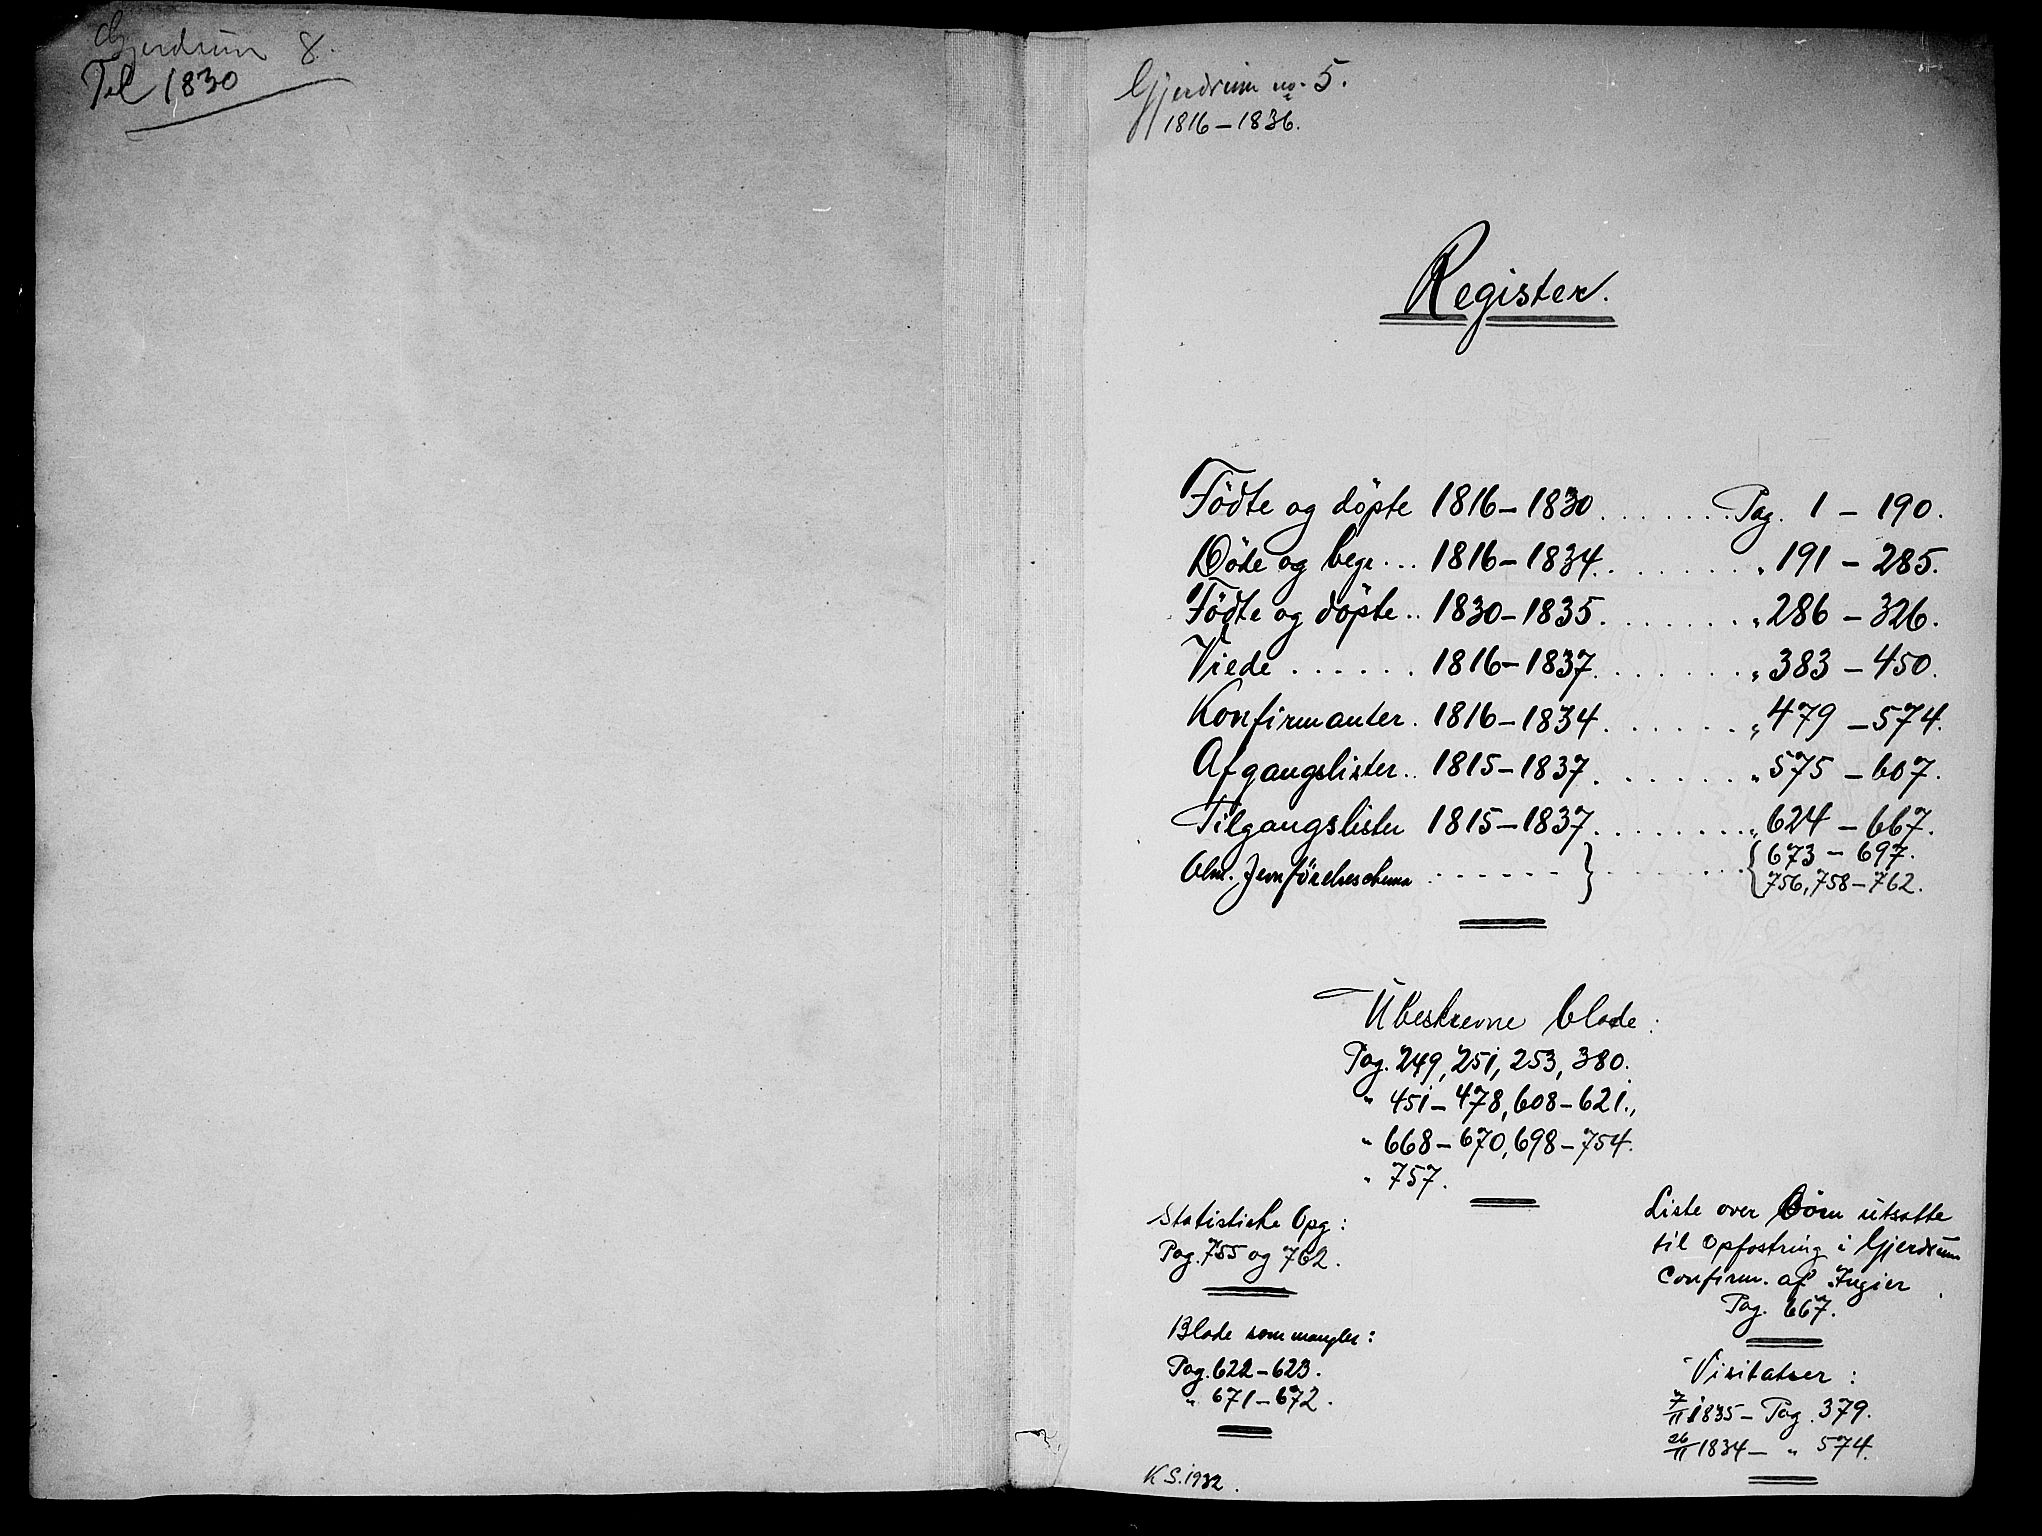 Gjerdrum 8.
Til 1830
Gjerdrum no. 5.
1816 – 1836.
Register.
Födte og döpte 1816 – 1830 . . . . . . . Pag. 1 – 190.
Döde og begr ... 1816 – 1834 . . . . . . . „ 191 – 285.
Födte og döpte .. 1830 – 1835 . . . . . . . „ 286 – 326.
Viede . . . . . . 1816 – 1837 . . . . . . . „ 383 – 450.
Konfirmanter . 1816 – 1834 . . . . . . . „ 479 – 574.
Afgangslister .. 1815 – 1837 . . . . . . . „ 575 – 607.
Tilgangslister 1815 – 1837 . . . . . . . . „ 624 – 667.
Alm. Jevnförelseschema . . . . . . } . . . . . . . { 673 – 697.
756, 758 – 762.
Ubeskrevne blade:
Pag. 249, 251, 253, 380.
„ 451 – 478, 608 – 621.,
„ 668 – 670, 698 – 754.
„ 757.
Statistiske Opg:
Pag. 755 og 762.
Blade som mangler:
Pag. 622 – 623.
„ 671 – 672.
K S. 1932.
Liste over Börn utsatte
til Opfostring i Gjerdrum
Confirm. af Ingier
Pag. 667.
Visitatser:
7/11 1835 – Pag. 379.
26/11 1834 – „ 574.